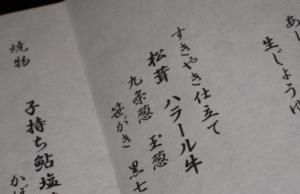 あし
生じょうゆ
すきやき仕立て
松茸 ハラール牛
九条葱 玉葱
笹がき 黒七
焼物
子持ち鮎塩
かぼ